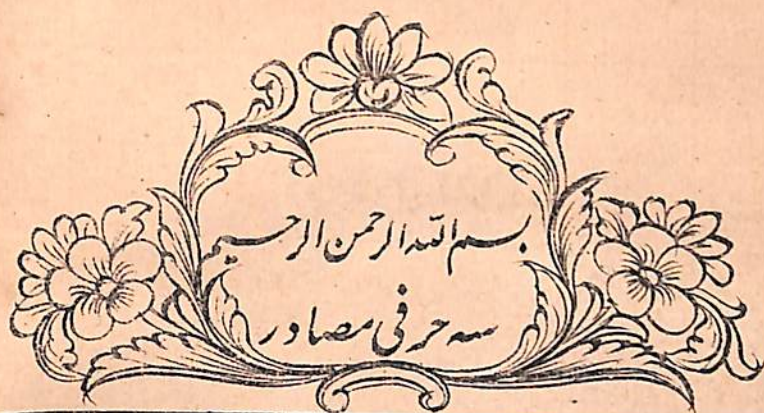 بسم اللہ الرحمن الرحیم
سہ حرفی مصادر